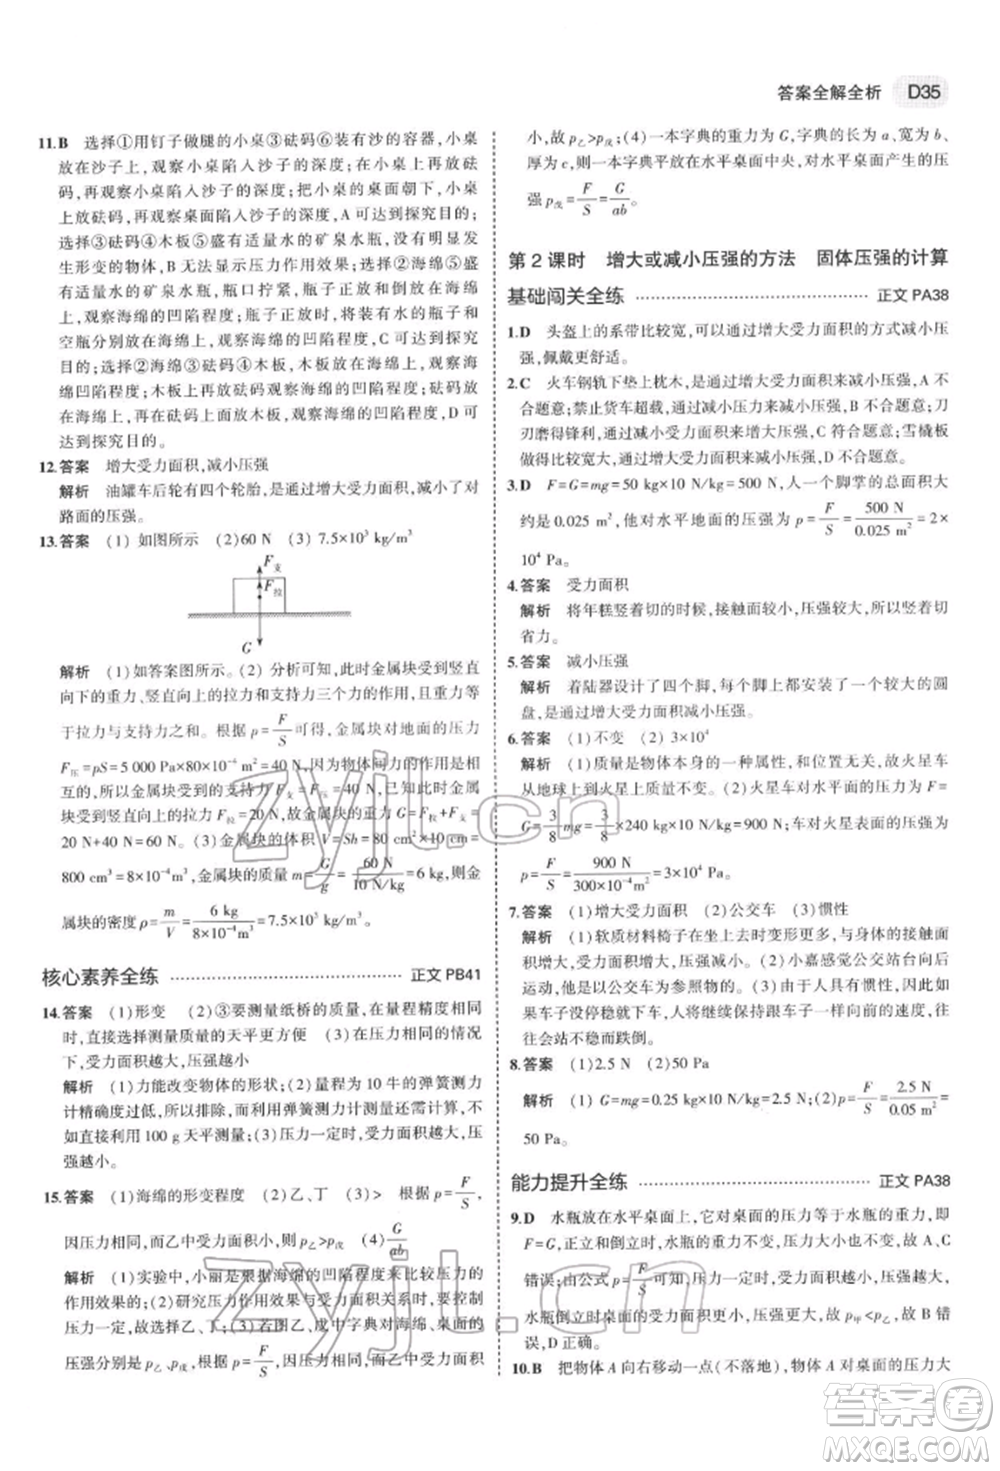 答案全解全析 D35
11.B 选择①用钉子做腿的小桌③砝码⑥装有沙的容器,小桌
放在沙子上,观察小桌陷入沙子的深度;在小桌上放上砝
码,再观察小桌陷入沙子的深度;把小桌倒过来,桌面上
上放砝码,再观察桌面陷入沙子的深度,A可达到探究目的;
选择③砝码④木板⑤盛有适量水的矿泉水瓶,没有明显
发生形变的物体,B无法显示压力作用效果;②海绵⑤盛
有适量水的矿泉水瓶,观察海绵的凹陷程度;盛水的瓶子和
空瓶分别放在海绵上,观察海绵凹陷程度,C可达到探究
目的;选择②海绵③砝码④木板,木板放在海绵上,观察海
绵凹陷程度;木板上再放砝码观察海绵的凹陷程度;木板放
在海绵上,再在砝码上放上砝码,观察海绵的凹陷程度,D可
达到探究目的。
12.答案 增大受力面积,减小压强
解析 油罐车后轮有四个轮胎,是通过增大受力面积,减小了对
路面的压强。
13.答案 (1)如图所示 (2)60 N (3)7.5×10³ kg/m³
F支
F拉
G
解析 (1)如答案图所示。(2)分析可知,此时金属块受到竖直
向下的重力、竖直向上的拉力和支持力三个力的作用,重力等
于拉力与支持力之和。根据p=F/S可得,金属块对地面的压力
F压=pS=5 000 Pa×80×10⁻⁴ m²=40 N,因为物体间力的作用是相
互的,所以地面对金属块的支持力F支=F压=40 N,金属
块受到竖直向上的拉力F拉=20 N,故金属块的重力G=F拉+F支=
20 N+40 N=60 N。(3)金属块的体积V=Sh=80 cm²×10 cm=
800 cm³=8×10⁻⁴ m³;金属块的质量m=G/g=60 N/10 N/kg=6 kg,金
属块的密度ρ=m/V=6 kg/8×10⁻⁴ m³=7.5×10³ kg/m³。
核心素养全练 正文 PB41
14.答案 (1)形变 (2)③要测量纸桥的质量,在量程精度相同
时,直接选择测量质量的天平更方便 (3)在压力相同的情况
下,受力面积越大,压强越小
解析 (1)力能改变物体的形状;(2)量程为10牛的弹簧测力
计精确度过低,所以排除,而且弹簧测力计测量的是重力,不
如直接利用100 g天平测量;(3)压力一定时,受力面积越大,压
强越小。
15.答案 (1)海绵的形变程度 (2)乙、丁 (3)> 根据p=F/S,
因压力相同,而乙中受力面积小,所以p乙>p戊 (4)G/ab
解析 (1)实验中,小丽是根据海绵的凹陷程度来比较压力的
作用效果的;(2)研究压力作用效果与受力面积关系时,要控制
压力一定,故选择乙、丁;(3)图乙、戊中字典对海绵的压力、压
强分别是p乙、p戊,根据p=F/S,因压力相同,而乙中受力面积
小,故p乙>p戊;(4)一本字典的重力为G,字典的长为a、宽为b、
厚为c,则一本字典平放在水平桌面中央,对水平桌面产生的压
强p戊=F/S=G/ab。
第2课时 增大或减小压强的方法 固体压强的计算
基础闯关全练 正文 PA38
1.D 头盔上的系带比较宽,可以通过增大受力面积的方式减小压
强,佩戴更舒适。
2.C 火车钢轨下垫上枕木,是通过增大受力面积来减小压强,A不
合题意;禁止货车超载,通过减小压力来减小压强,B不合题意;刀
刃磨得锋利,通过减小受力面积来增大压强,C符合题意;雪橇板
做得很宽大,通过增大受力面积来减小压强,D不合题意。
3.D F=G=mg=50 kg×10 N/kg=500 N,人一个脚掌的总面积大
约是0.025 m²,他对水平地面的压强为p=F/S=500 N/0.025 m²=2×
10⁴ Pa。
4.答案 受力面积
解析 将年糕竖着切的时候,接触面较小,压强较大,所以竖着切
省力。
5.答案 减小压强
解析 着陆器设计了四个脚,每个脚上安装了一个较大的圆
盘,是通过增大受力面积减小压强。
6.答案 (1)不变 (2)3×10⁴
解析 (1)质量是物体本身的一种属性,与位置无关,故火星车
从地球上到火星上,质量不变;(2)火星车在火星上的重力
G=3/8mg=3/8×240 kg×10 N/kg=900 N;车对火星的压强为
p=F/S=900 N/300×10⁻⁴ m²=3×10⁴ Pa。
7.答案 (1)增大受力面积 (2)公交车 (3)惯性
解析 (1)软质材料椅子在坐下时变形更多,与身体的接触
面积增大,受力面积增大,压强减小;(2)小嘉感觉公交站台在
运动,是以公交车为参照物;(3)车上的乘客具有惯性,因此如
果车子忽然停下来,人会继续保持跟车子一样的速度向前,往
往会站不稳而跌倒。
8.答案 (1)2.5 N (2)50 Pa
解析 (1)G=mg=0.25 kg×10 N/kg=2.5 N;(2)p=F/S=2.5 N/0.05 m²=
50 Pa。
能力提升全练 正文 PA38
9.D 水瓶放在水平桌面上,它对桌面的压力等于水瓶的重力,即
F=G,因为水瓶的重力不变,故水瓶对桌面的压力不变,故A、C
错误;由公式p=F/S可知,当压力一定时,受力面积越小,压强越大,
水瓶倒立时对桌面的受力面积小,压强较大,故p甲<p乙,故B错
误,D正确。
10.B 把物体A向右移动一点(不落地),物体A对桌面的压力大
zyjl.cn
zyjl.cn
答案圈
MXQE.COM